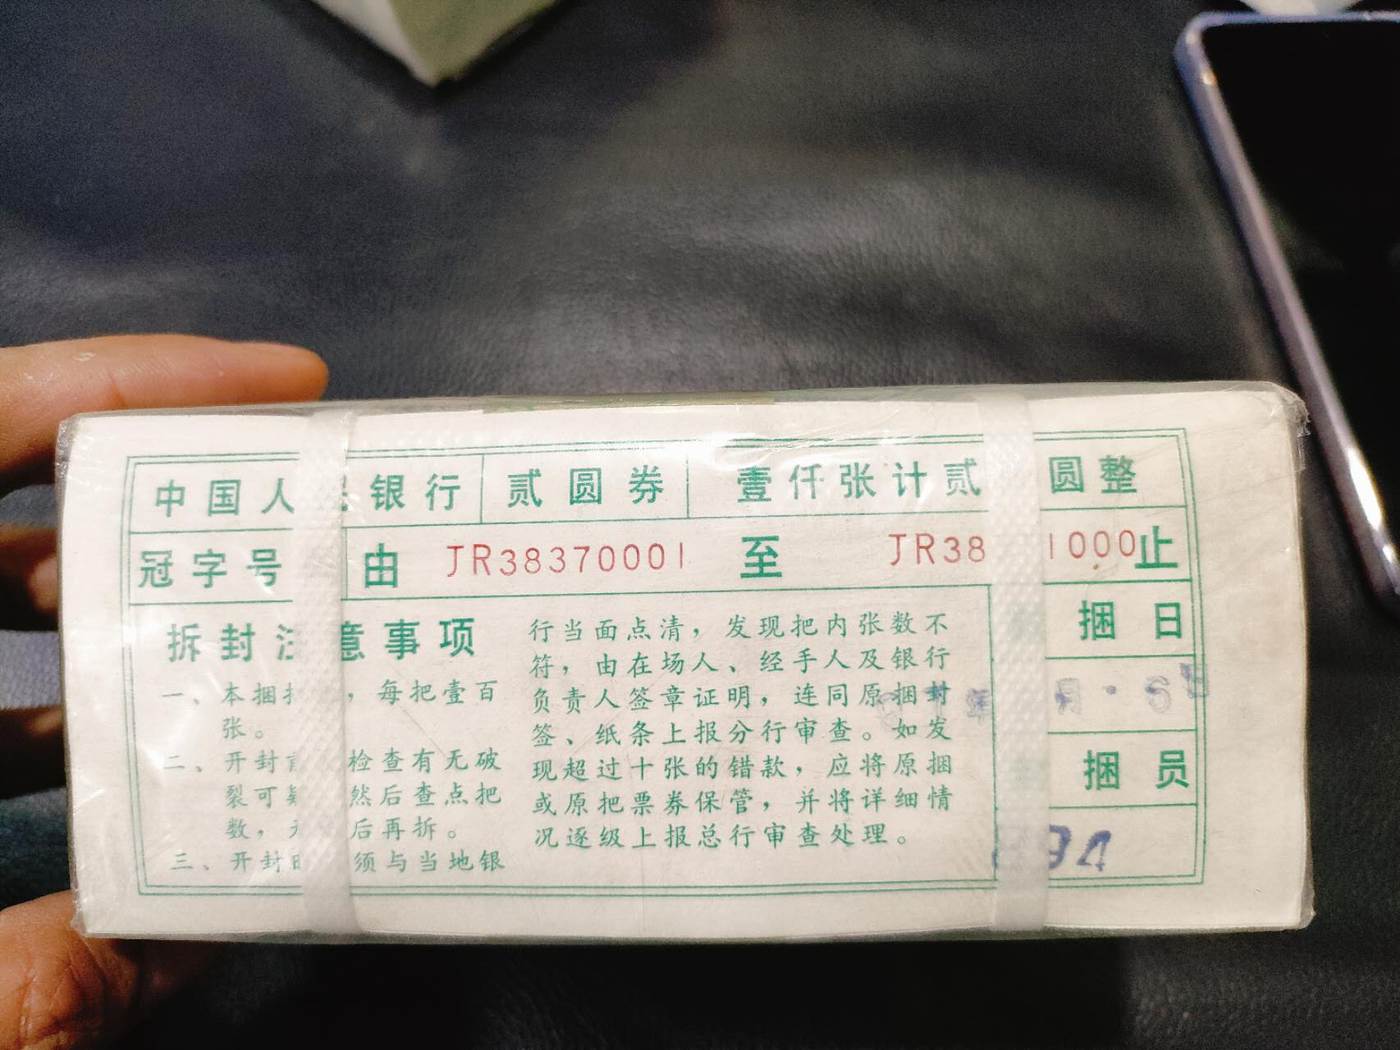 中国人民银行 贰圆券 壹仟张计贰 圆整
冠字号 由 JR38370001 至 JR38 1000止
拆封注意事项
一、本捆 ，每把壹百
张。
二、开封 检查有无破
裂可疑 然后查点把
数， 后再拆。
三、开封 须与当地银
行当面点清，发现把内张数不
符，由在场人、经手人及银行
负责人签章证明，连同原捆封
签、纸条上报分行审查。如发
现超过十张的错款，应将原捆
或原把票券保管，并将详细情
况逐级上报总行审查处理。
捆日
年 月 6日
捆员
94